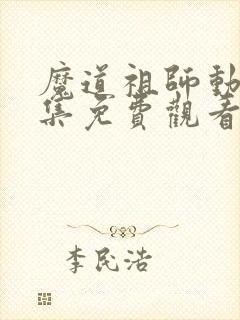 魔道祖師動
集免費觀看
李民浩